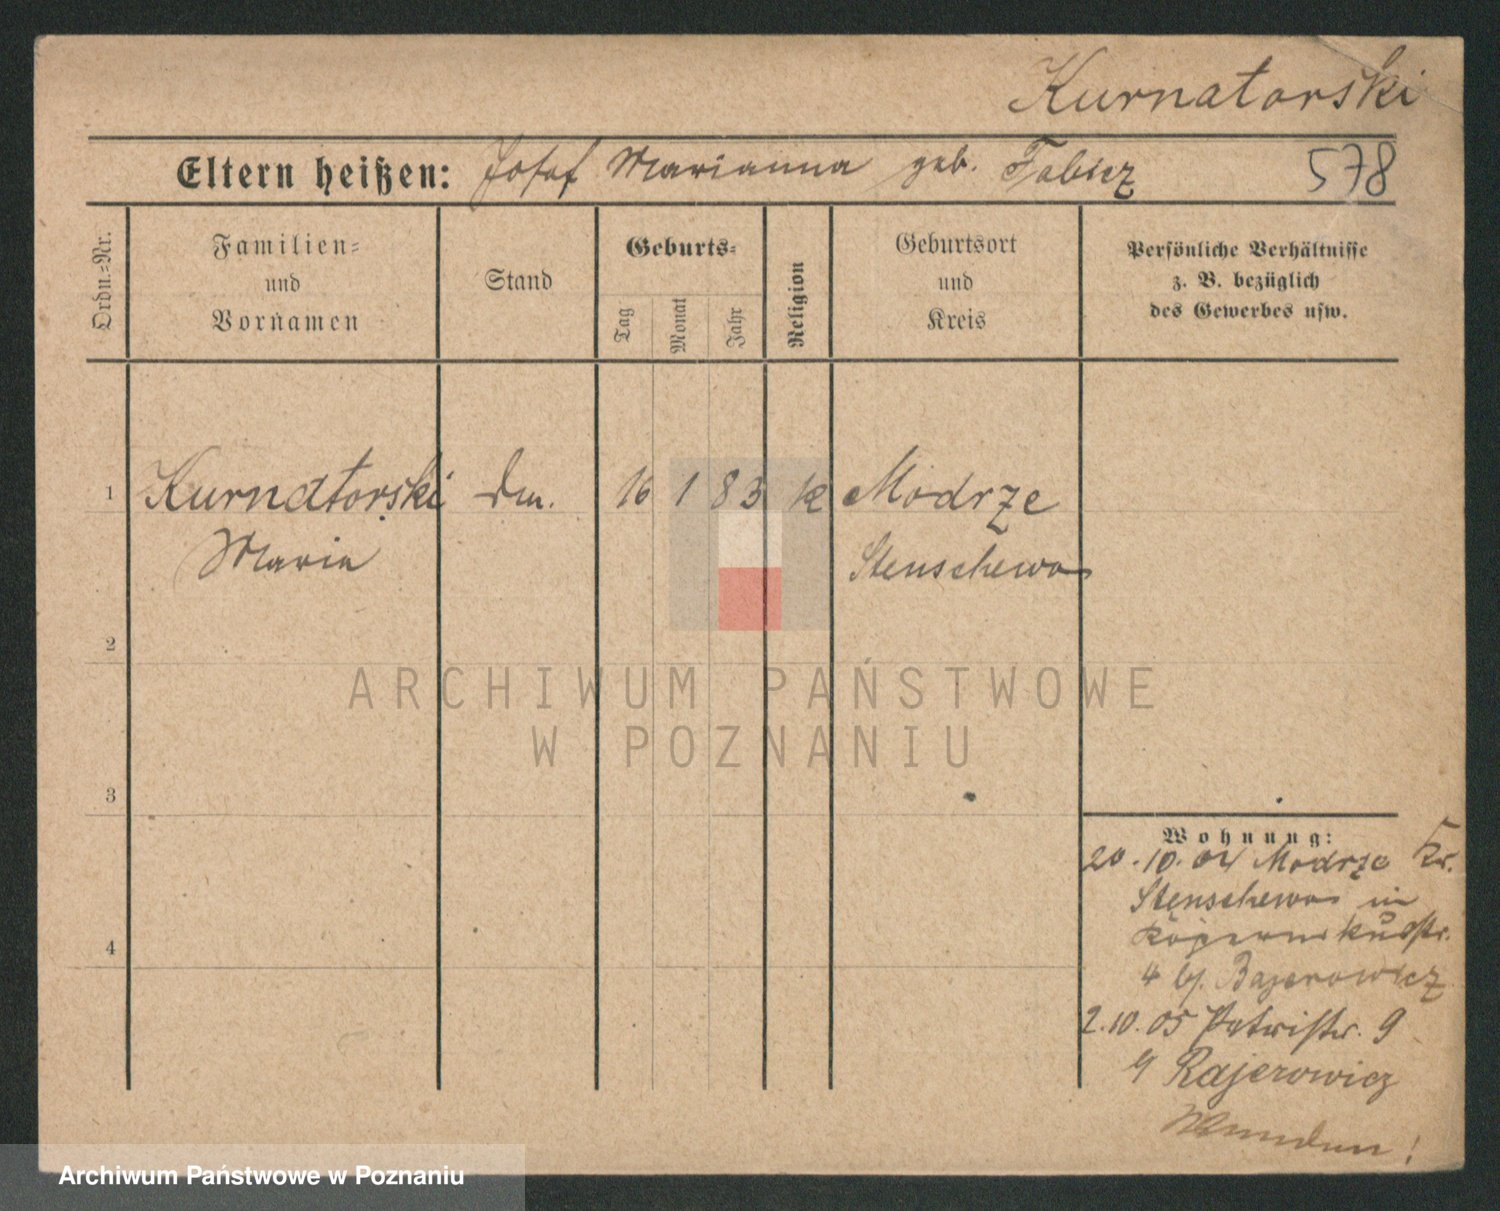 Kurnatorski
Eltern heißen: Josef Marianna geb. Fabicz 578
Ordn.-Nr.
Familien-
und
Vornamen
Stand
Geburts-
Tag
Monat
Jahr
Religion
Geburtsort
und
Kreis
Persönliche Verhältnisse
z. B. bezüglich
des Gewerbes usw.
1 Kurnatorski 16 1 83 k Modrze
Maria Stenschewo
2
ARCHIWUM PAŃSTWOWE
W POZNANIU
3
Wohnung:
20.10.04 Modrze Kr.
Stenschewo in
4
4 bj. Bajerowicz
2.10.05 Petristr. 9
Rajerowicz
Archiwum Państwowe w Poznaniu